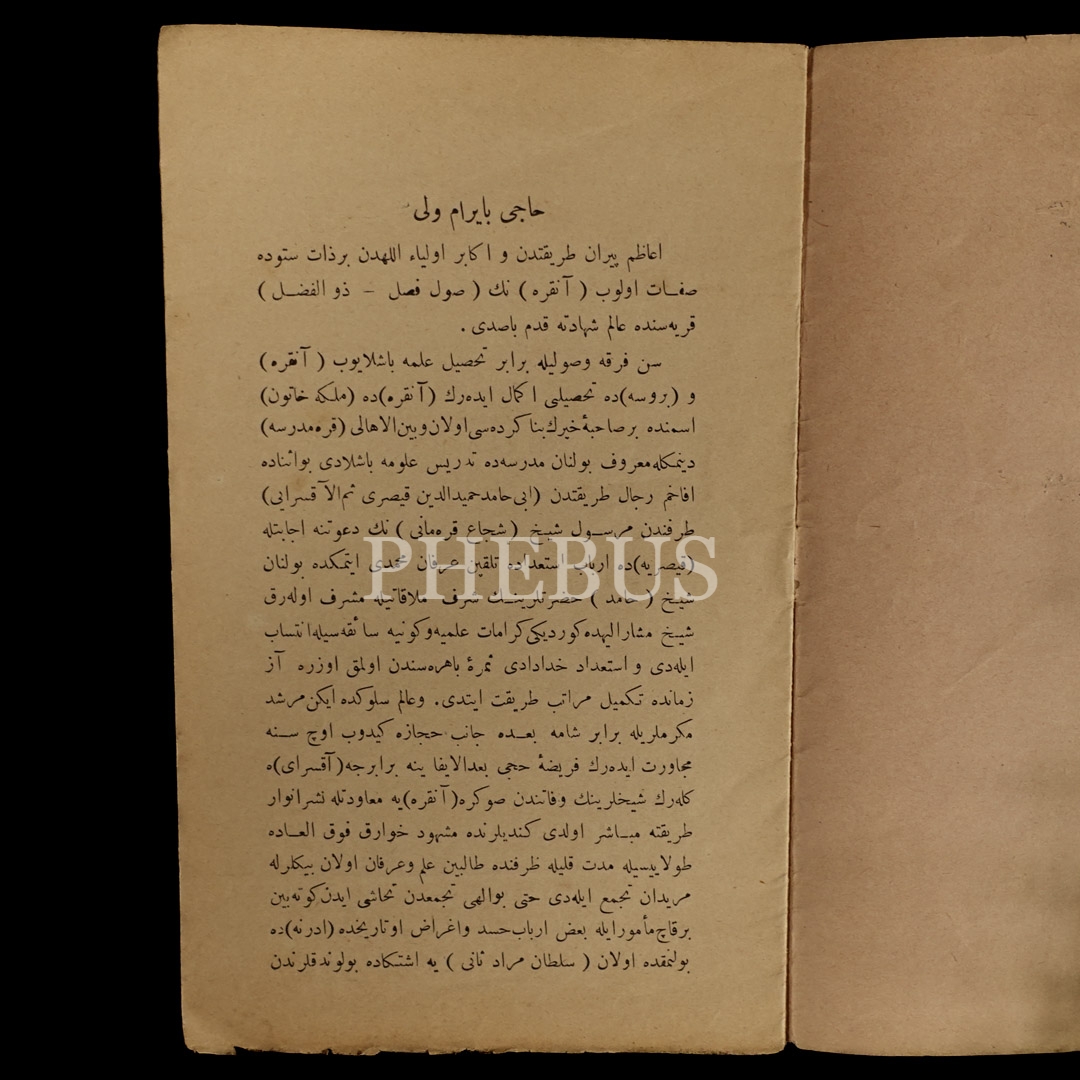 حاجی بایرام ولی
اعاظم پیران طریقتدن و اکابر اولیاء اللهدن برذات ستوده
صفـات اولوب ( آنقره ) نك ( صول فصل – ذو الفضـل )
قریه‌سنده عالم شهادته قدم باصدی .
سن فرقه وصولیله برابر تحصیل علمه باشلایوب ( آنقره )
و (بروسه)ده تحصیلی اکمال ایده‌رك (آنقره)ده (ملکه خاتون)
اسمنده برصاحبهٔ خیرك بناکرده‌سی اولان و بین‌الاهالی (قره‌مدرسه)
دینمکله معروف بولنان مدرسه‌ده تدریس علومه باشلادی بوائناده
افاخم رجال طریقتدن (ابی حامد حمیدالدین قیصری ثم‌الآقسرایی)
طرفندن مرسـول شیخ (شجاع قره‌مانی ) نك دعوتنه اجابتله
(قیصریه)ده ارباب استعداده تلقین عرفان محمدی ایتمکده بولنان
شیـخ ( حامد ) حضرتلرینـك شرف ملاقاتیله مشرف اوله‌رق
شیـخ مشارالیهده کوردیکی کرامات علمیه‌وکونیه سائقه‌سیله‌انتساب
ایله‌دی و استعداد خدادادی ثمرهٔ باهره‌سندن اولمق اوزره آز
زمانده تکمیل مراتب طریقت ایتدی. وعالم سلوکده ایکن مرشد
مکرملریله برابر شامه بعـده جانب حجازه کیدوب اوچ سـنه
مجاورت ایده‌رك فریضهٔ حجی بعدالایفا ینه برابرجه (آقسرای)ه
کله‌رك شیخلرینك وفاتندن صوکره(آنقره)یه معاودتله نشرانوار
طریقته مبـاشر اولدی کندیلرنده مشهود خوارق فوق العـاده
طولاییسیله مدت قلیله ظرفنده طالبین علم وعرفان اولان بیکلرله
مریدان تجمع ایله‌دی حتی بوالهی تجمعدن تحاشی ایدن‌کوته‌بین
برقاچ‌مأمورایله بعض ارباب‌حسد واغراض اوتاریخده (ادرنه)ده
بولنمقده اولان ( سلطان مراد ثانی ) یه اشتکاده بولوندقلرندن
PHEBUS